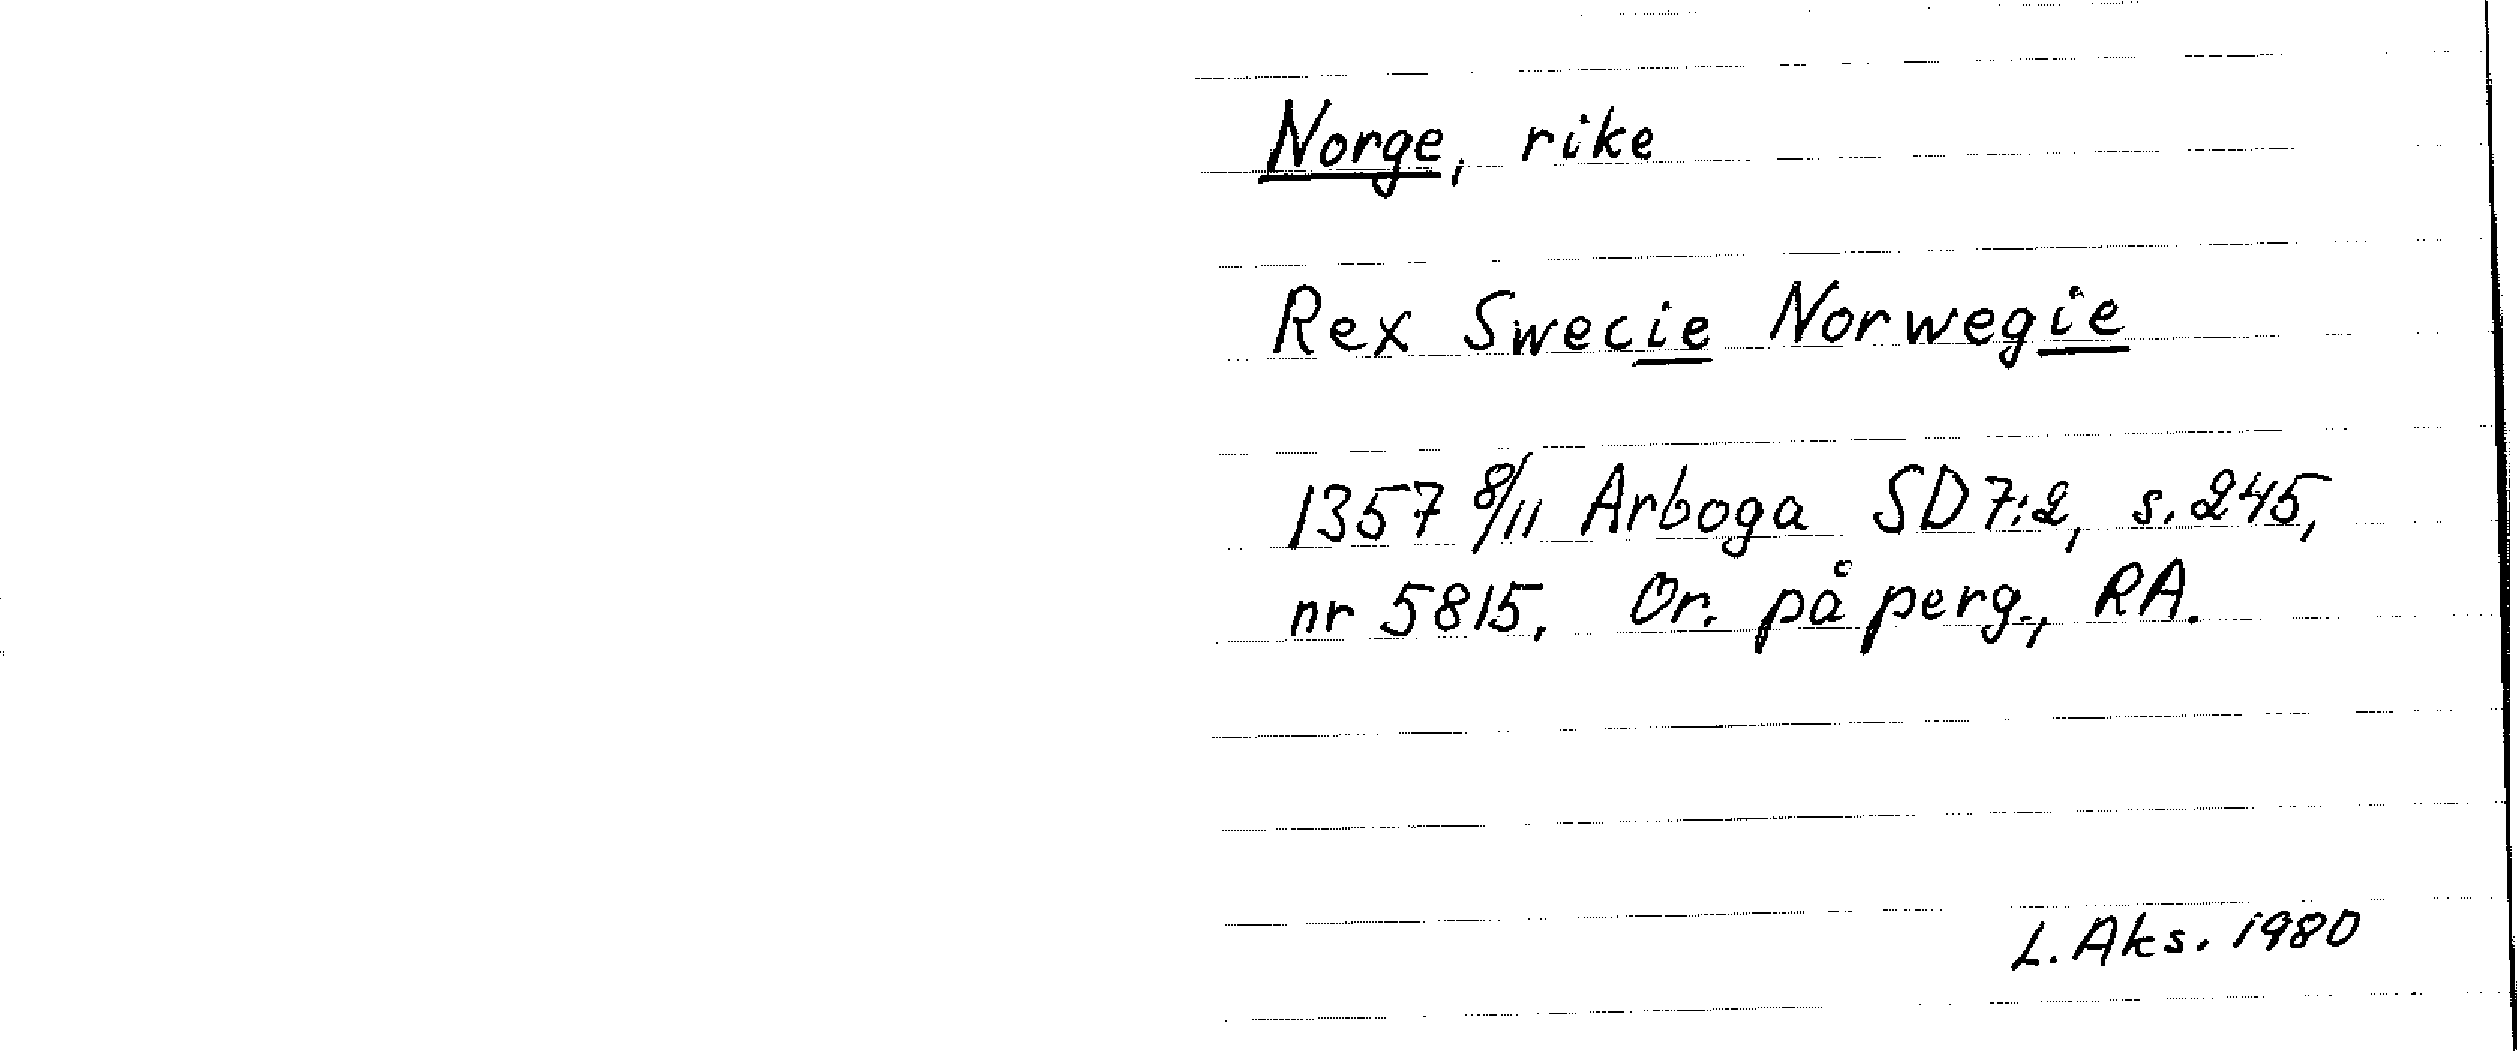 Norge, rike
Rex Swecie Norwegie
1357 8/11 Arboga SD 7:2, s. 245,
nr 5815. Or. på perg., RA.
L. Aks. 1980